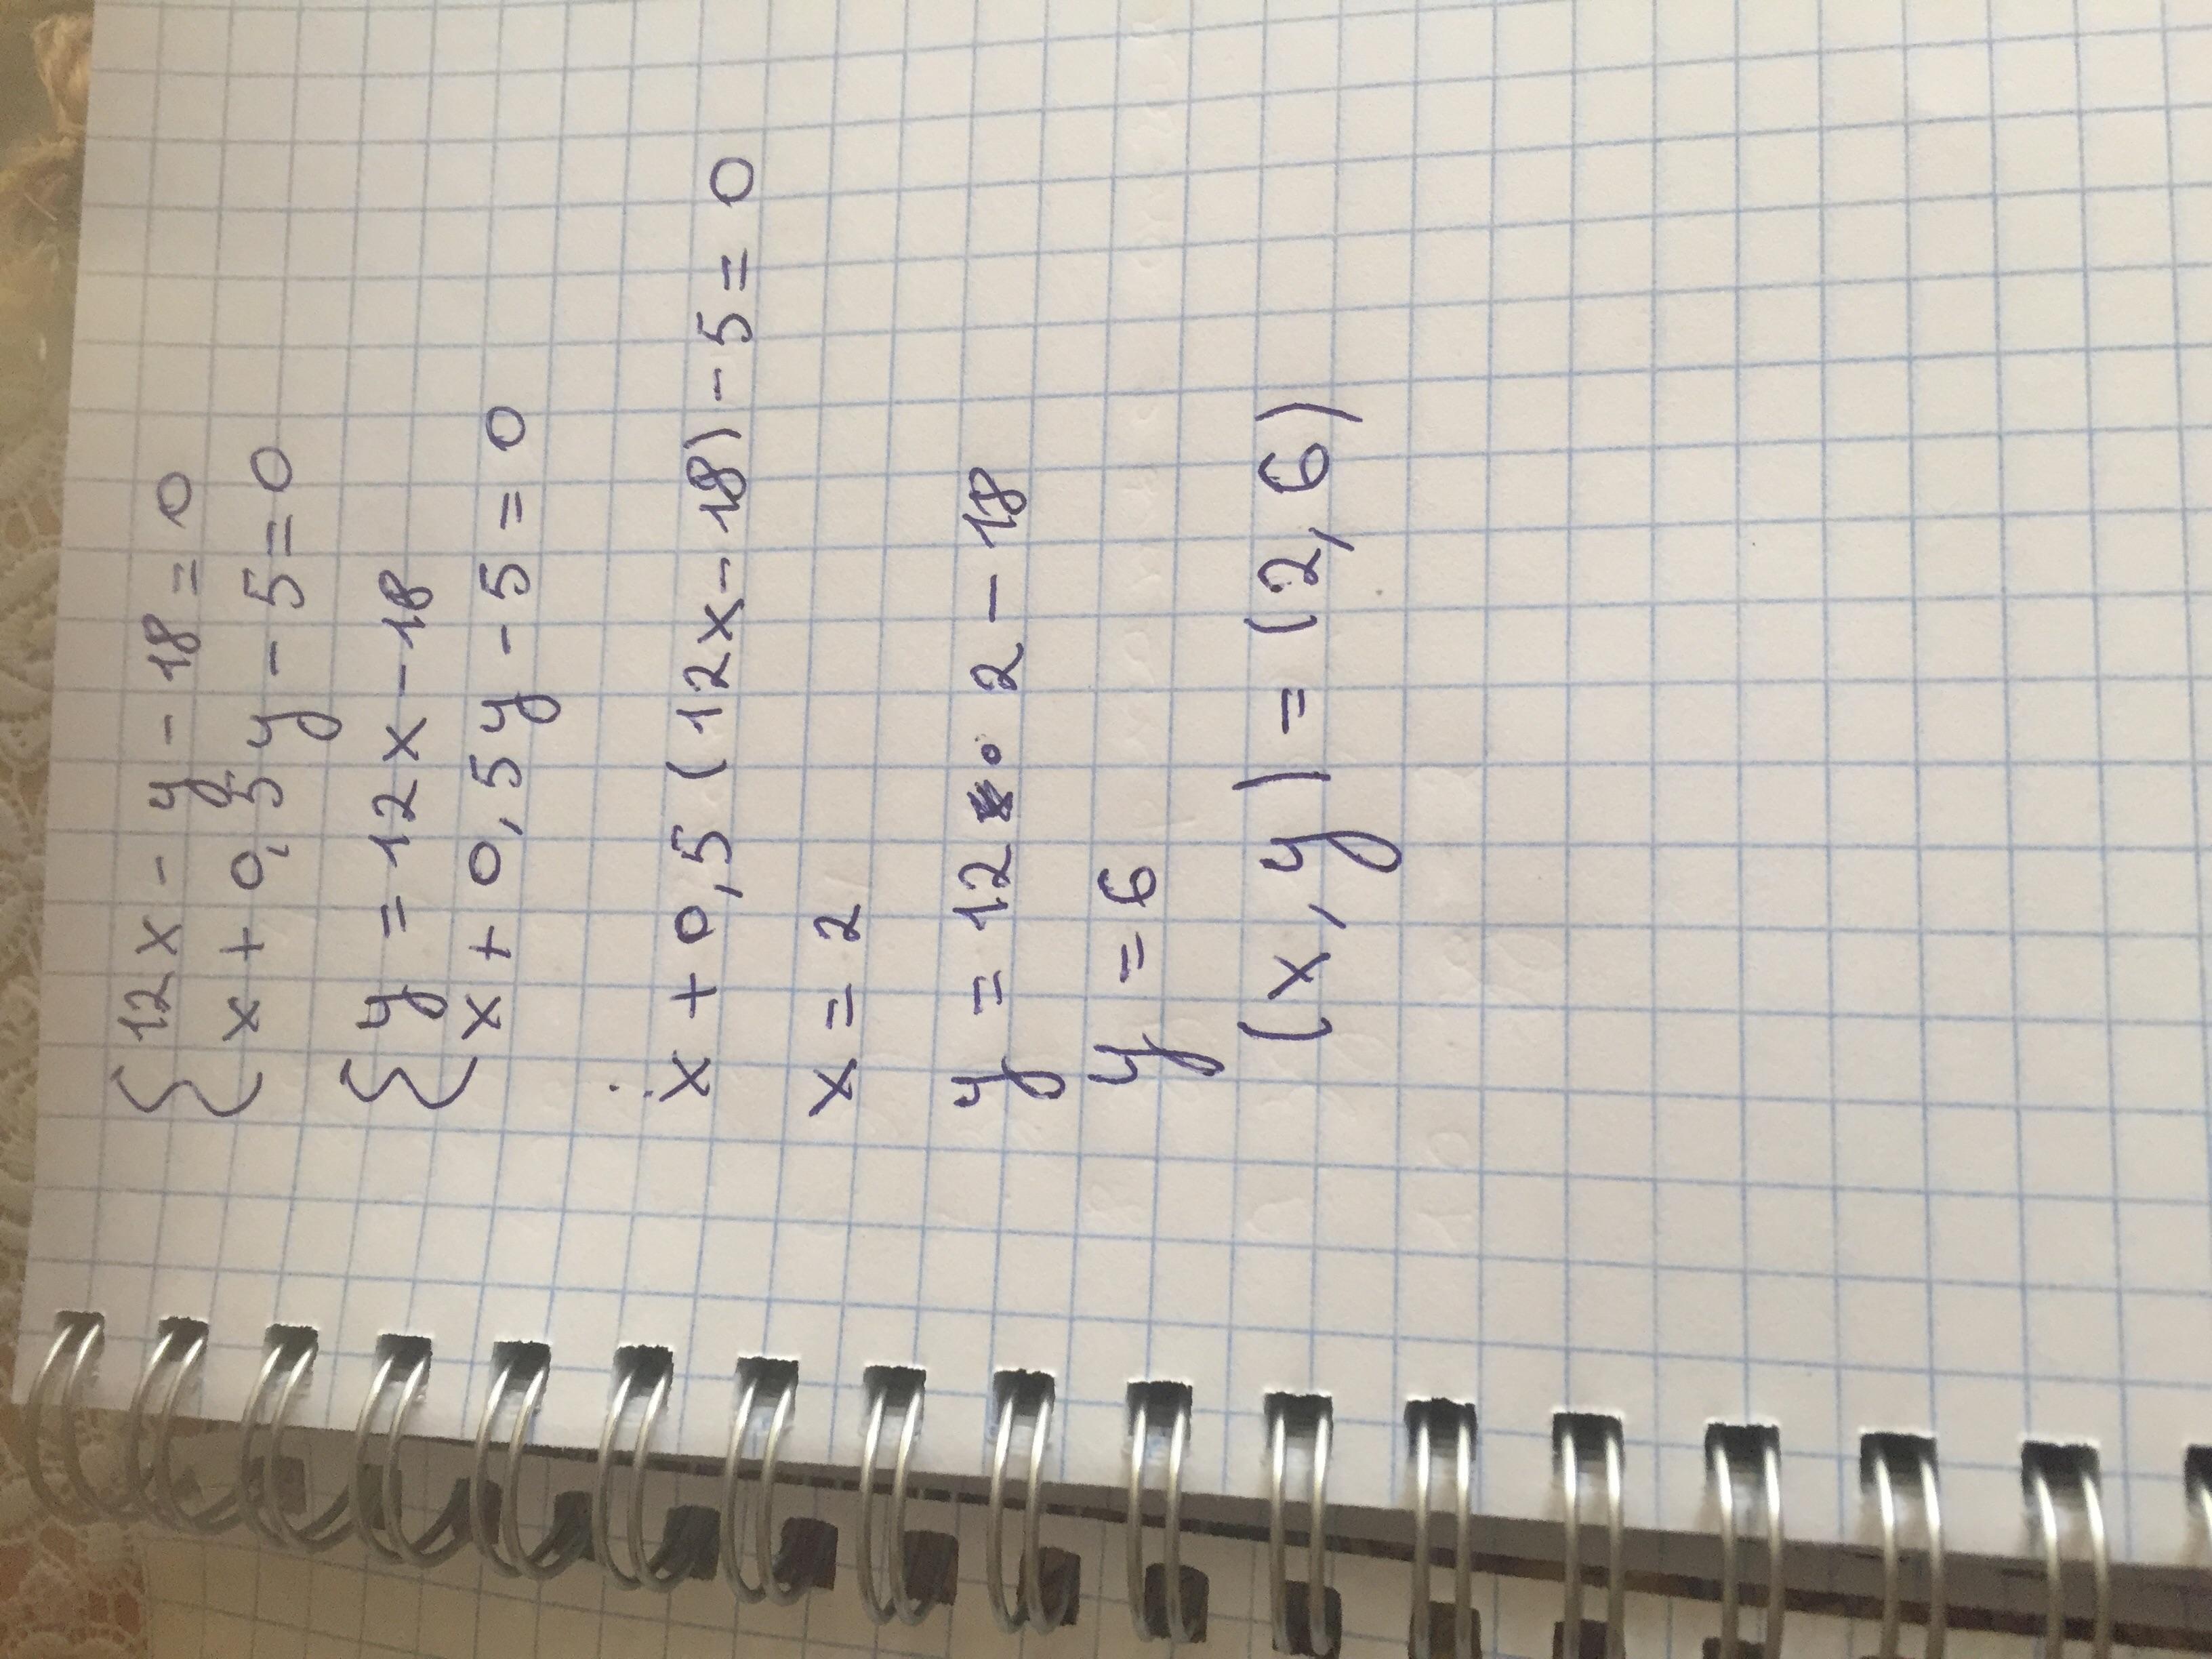 { 12x - y - 18 = 0
x + 0,5y - 5 = 0
{ y = 12x - 18
x + 0,5y - 5 = 0
x + 0,5 (12x - 18) - 5 = 0
x = 2
y = 12 · 2 - 18
y = 6
(x, y) = (2, 6)